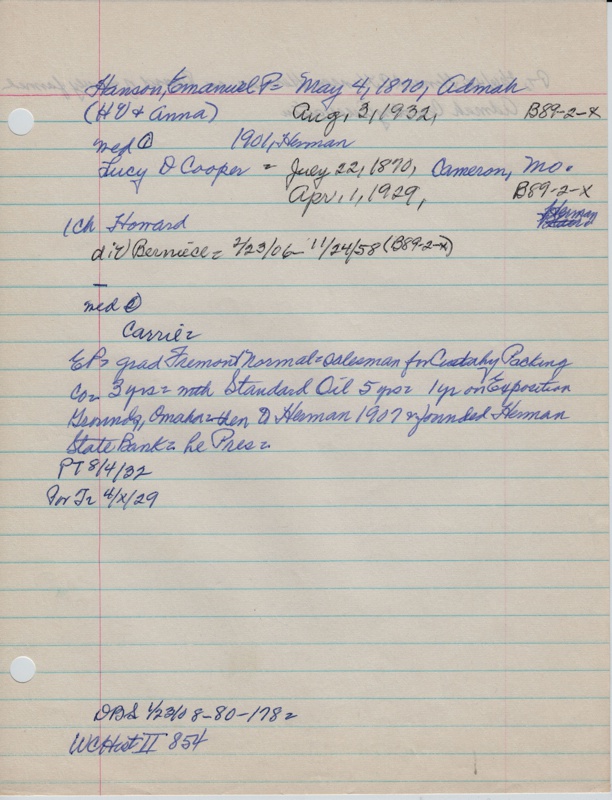 Hanson, Emanuel P= May 4, 1870, Admah
(HV & Anna) Aug, 3, 1932, B89-2-X
med ① 1901, Herman
Lucy D Cooper = July 22, 1870, Cameron, Mo.
Apr, 1, 1929, B89-2-X
1ch Howard
div) Berniece = 2/23/06 - 11/24/58 (B89-2-X)
med ②
Carrie=
EP= grad Fremont Normal= salesman for Cudahy Packing
Co= 3 yrs= with Standard Oil 5 yrs= 1 yr on Exposition
Grounds, Omaha= then to Herman 1907 & founded Herman
State Bank= he Pres=
PT 8/4/32
Por Tr 4/X/29
DBS 1/23/08-80-178=
WCHist II 854